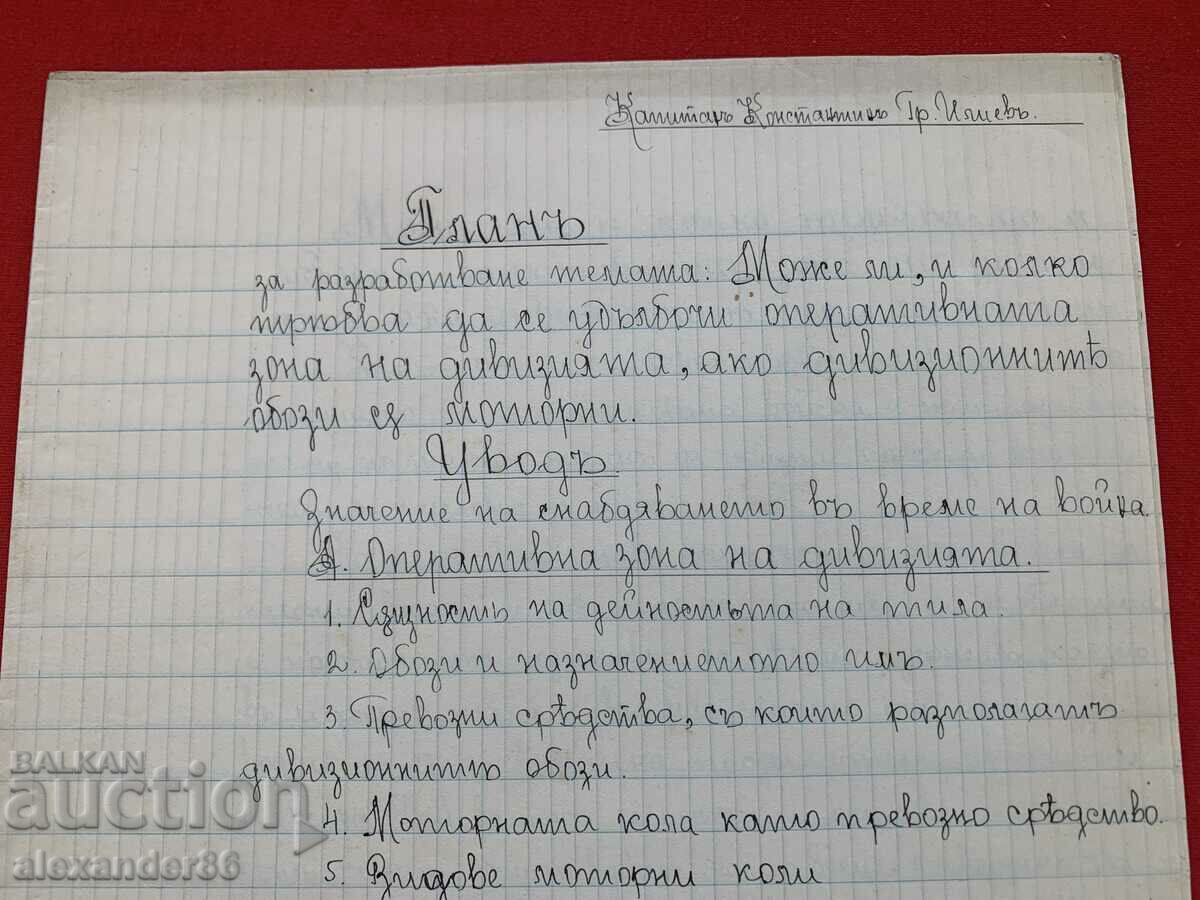 Капитанъ Константинъ Гр. Илиевъ.
Планъ
за разработване темата: Може ли, и колко
трѣбва да се удълбочи оперативната
зона на дивизията, ако дивизионнитѣ
обози сѫ моторни.
Уводъ.
Значение на снабдяването въ време на война.
А. Оперативна зона на дивизията.
1. Сѫщность на дейностьта на тила.
2. Обози и назначението имъ.
3. Превозни срѣдства, съ които разполагатъ
дивизионнитѣ обози.
4. Моторната кола като превозно срѣдство.
5. Видове моторни коли
BALKAN
auction
alexander86